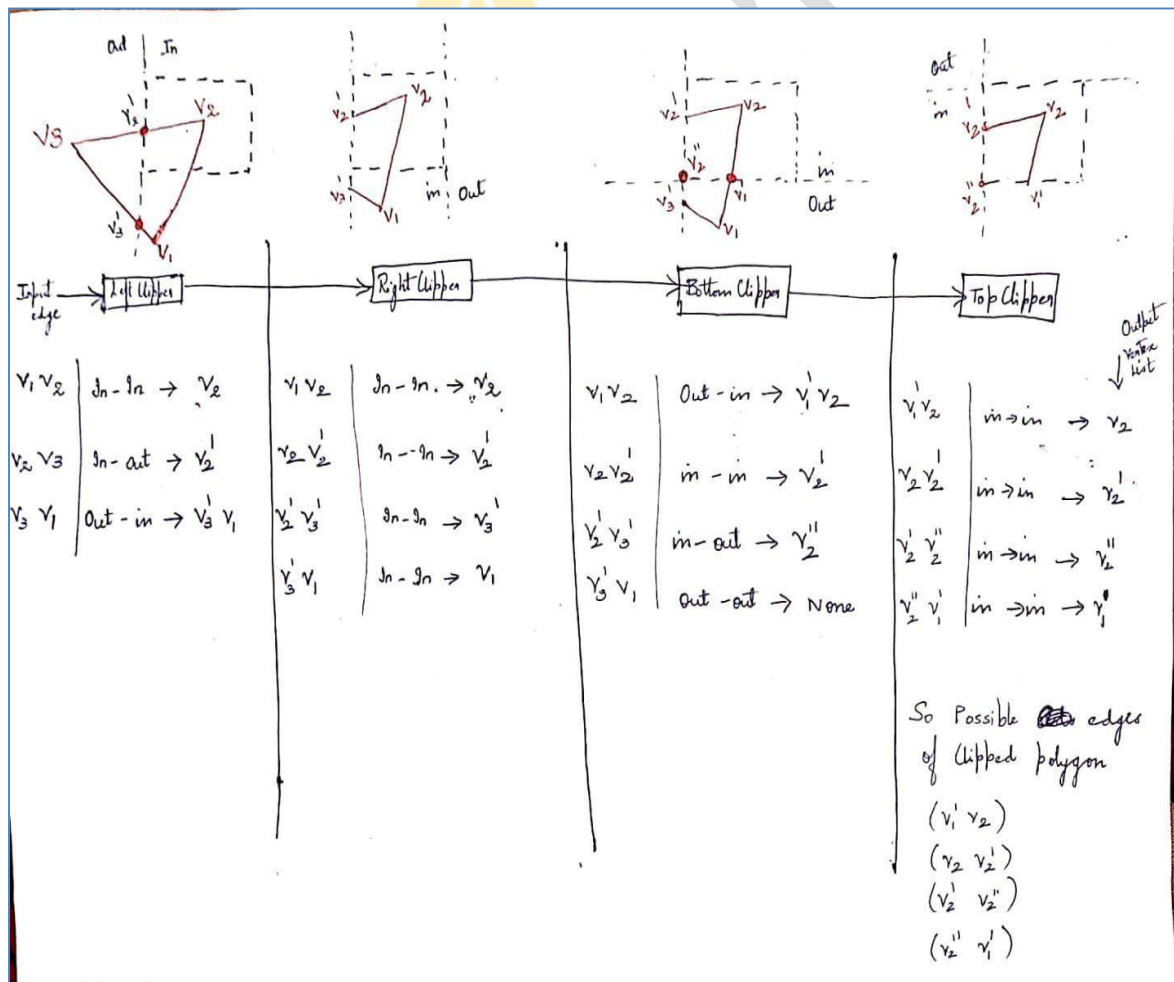 Out | In
V3 v2' v2
v3' V1
v2' v2
v3' v1 in Out
v2' v2
v2''
v3' v1' in
v1 Out
Out
in
v2' v2
v2'' v1''
Input edge → Left Clipper → Right Clipper → Bottom Clipper → Top Clipper
Output vertex List
v1 v2 | In - In → v2
v2 v3 | In - out → v2'
v3 v1 | Out - in → v3' v1
v1 v2 | In - In. → v2
v2 v2' | In - In → v2'
v2' v3' | In - In → v3'
v3' v1 | In - In → v1
v1 v2 | Out - in → v1' v2
v2 v2' | in - in → v2'
v2' v3' | in - out → v2''
v3' v1 | out - out → None
v1' v2 | in → in → v2
v2 v2' | in → in → v2'
v2' v2'' | in → in → v2''
v2'' v1' | in → in → v1'
So Possible edges
of Clipped polygon
(v1' v2)
(v2 v2')
(v2' v2'')
(v2'' v1')